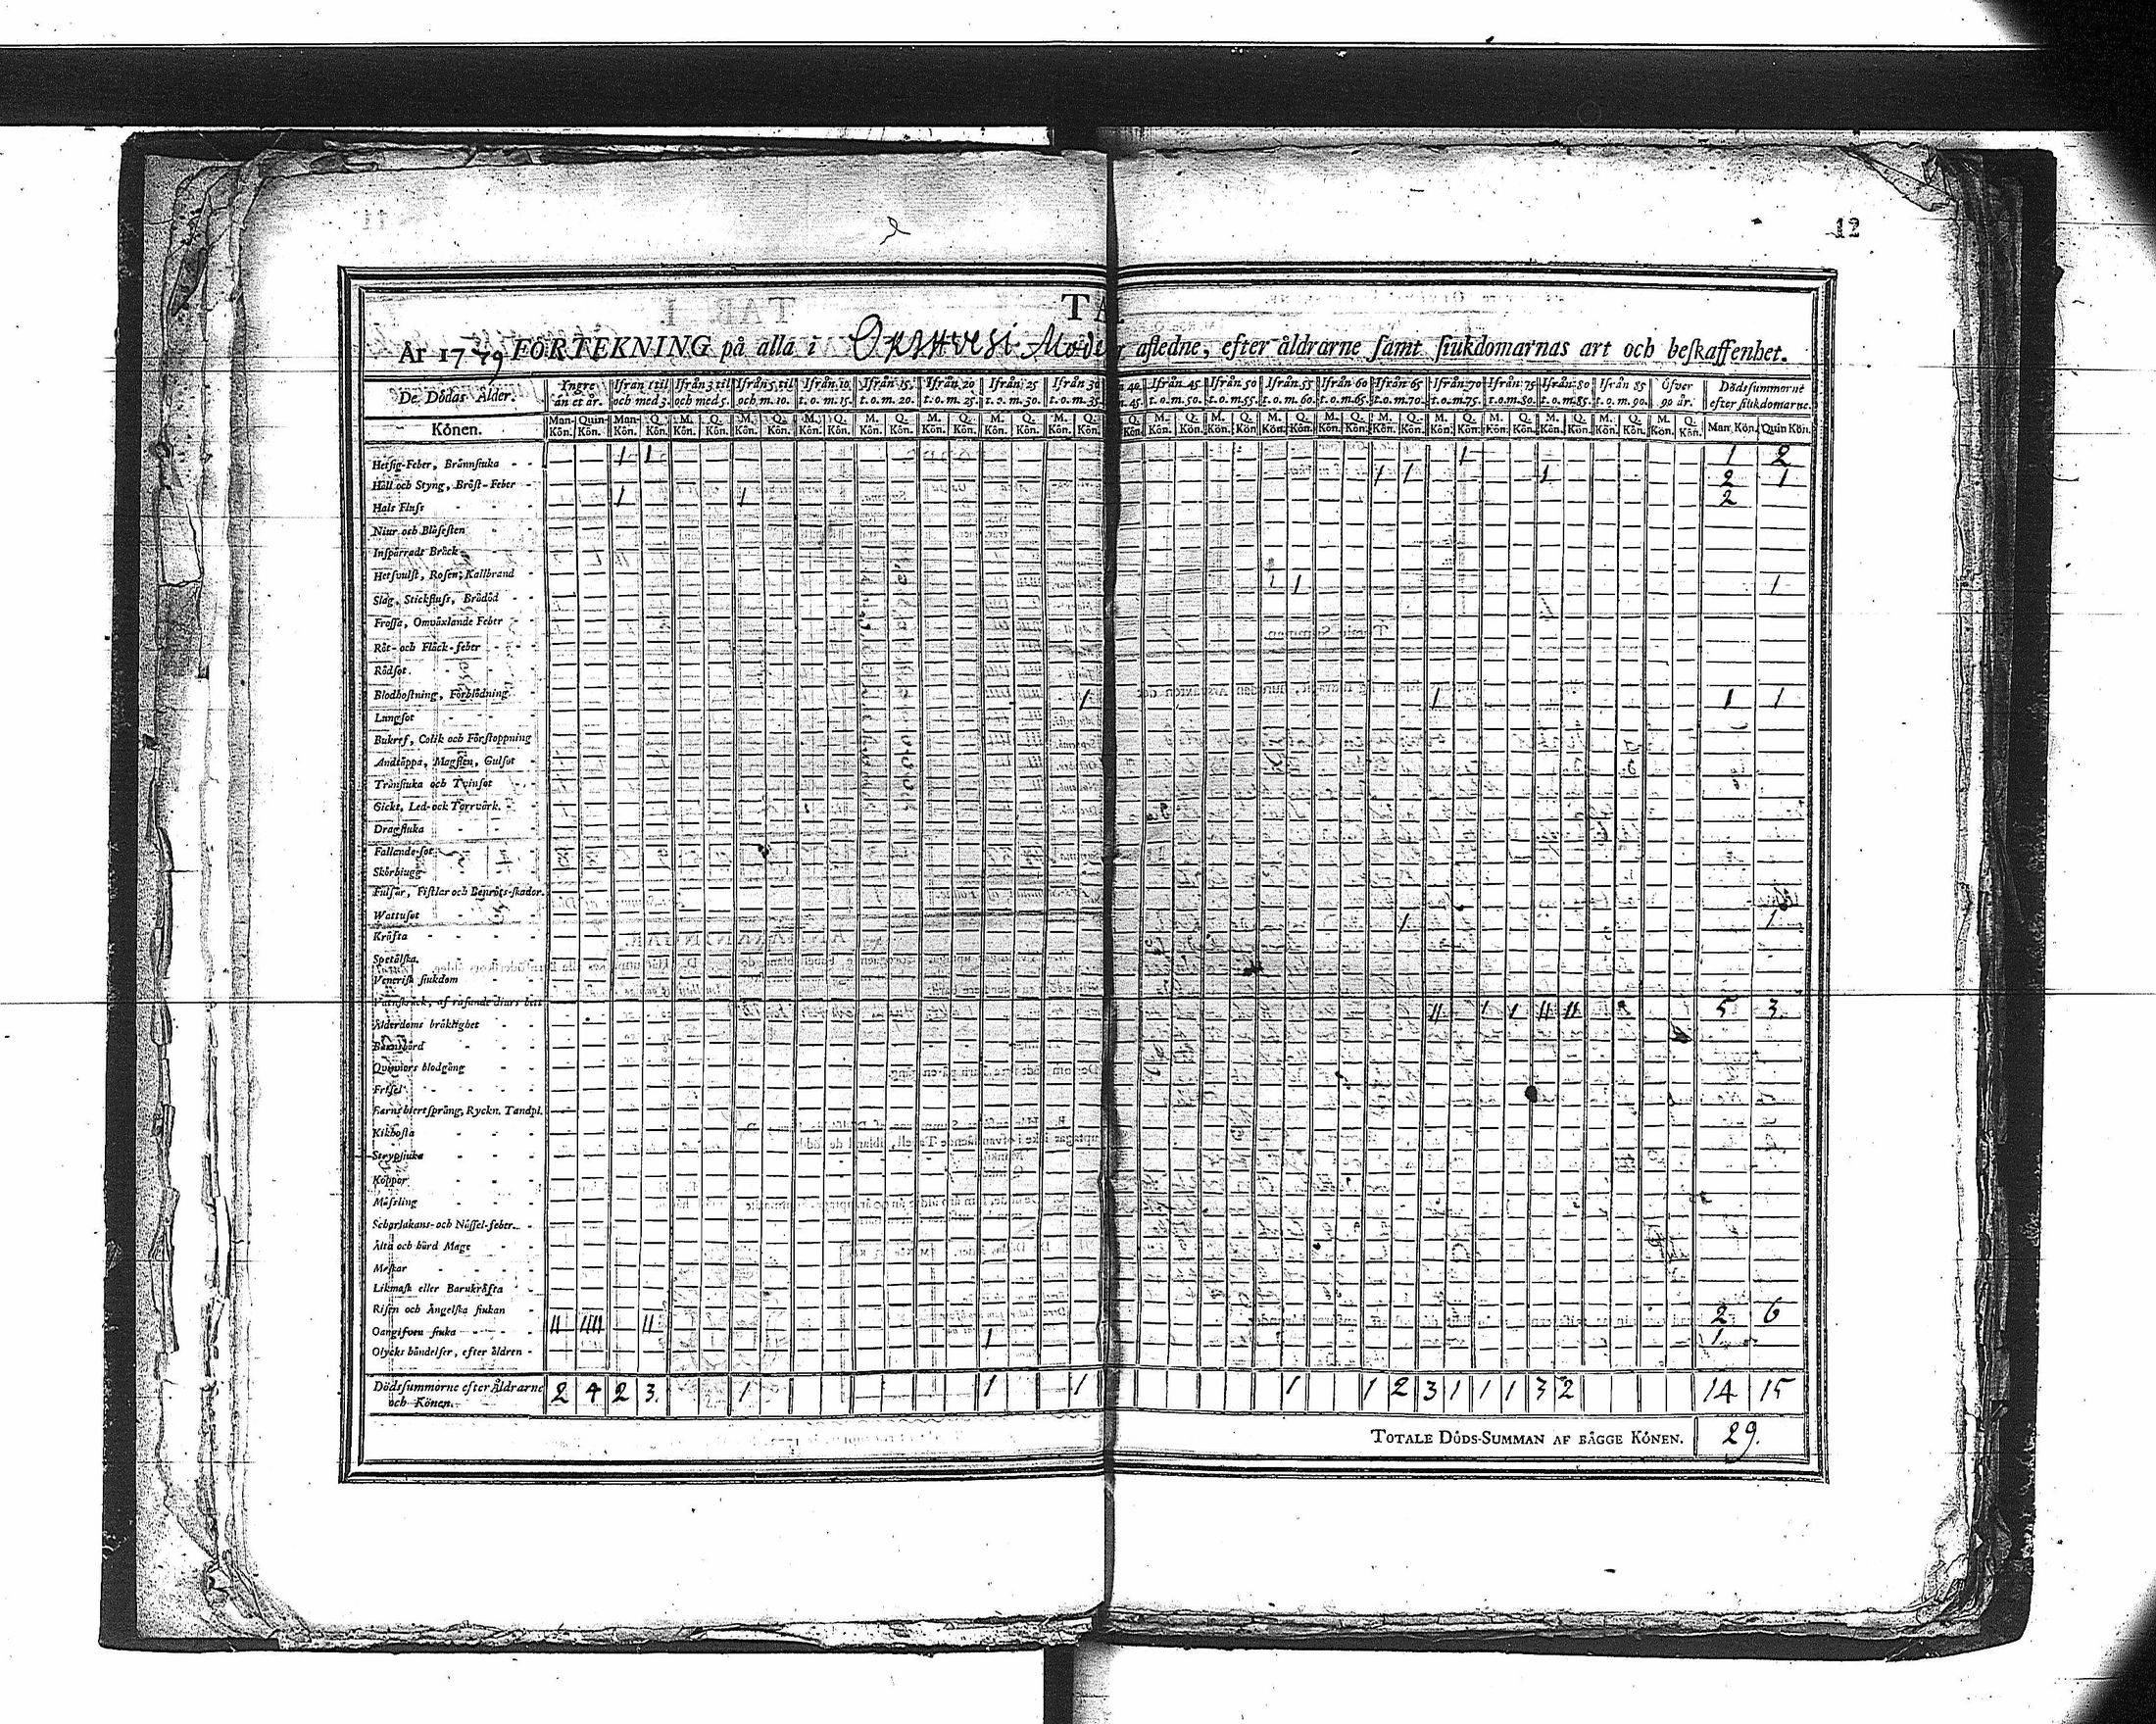 12
TA
År 1779 FÖRTEKNING på alla i Orihvesi afledne, efter åldrarne samt siukdomarnas art och beskaffenhet.
De Dödas Ålder. Yngre än et år. Ifrån 1 til och med 3. Ifrån 3 til och med 5. Ifrån 5 til och m. 10. Ifrån 10 t. o. m. 15. Ifrån 15 t. o. m. 20. Ifrån 20 t. o. m. 25. Ifrån 25 t. o. m. 30. Ifrån 30 t. o. m. 35. Ifrån 45 t. o. m. 50. Ifrån 50 t. o. m. 55. Ifrån 55 t. o. m. 60. Ifrån 60 t. o. m. 65. Ifrån 65 t. o. m. 70. Ifrån 70 t. o. m. 75. Ifrån 75 t. o. m. 80. Ifrån 80 t. o. m. 85. Ifrån 85 t. o. m. 90. Öfver 90 år. Dödssummorne efter siukdomarne.
Könen. Man Kön. Quin Kön.
Hetsig-Feber, Brännsiuka 1 1 1 1 2
Håll och Styng, Bröst-Feber 1 1 1 2 1
Hals Fluss 1 1 2
Niur och Blåsesten
Inspärrade Bråck
Hetsvulst, Rosen, Kallbrand
Slag, Stickfluss, Brådöd 1 1
Frossa, Omväxlande Feber
Röt- och Fläck-feber
Rödsot
Blodhostning, Förblödning
Lungsot 1 1 1 1
Bukref, Colik och Förstoppning
Andtäppa, Magsten, Gulsot
Trånsiuka och Tvinsot
Gickt, Led- och Torrvärk
Dragsiuka
Fallande-sot
Skörbiugg
Fulsår, Fistlar och Benröts-skador.
Wattusot 1 1
Kräfta
Spetälska
Venerisk siukdom
Vatuskräck, af rasande diurs bett
Ålderdoms bräklighet 11 1 1 11 11 5 3
Barnsbörd
Qvinnors blodgång
Frisel
Barns hiertsprång, Ryckn. Tandpl.
Kikhosta
Strypsiuka
Koppor
Mässling
Scharlakans- och Nässel-feber
Älta och hård Mage
Maskar
Likmask eller Barnkräfta
Risen och Ängelska siukan
Oangifven siuka 11 1111 11 2 6
Olycks händelser, efter åldren 1 1
Dödssummorne efter Åldrarne och Könen. 2 4 2 3. 1 1 1 1 1 2 3 1 1 1 3 2 14 15
TOTALE DÖDS-SUMMAN AF BÄGGE KÖNEN. 29.